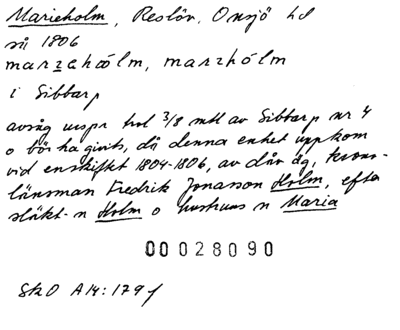 Marieholm, Reslöv, Onsjö hd
så 1806
marzehòlm, marzhólm
i Sibbarp
avsåg urspr trol 3/8 mtl av Sibbarp nr 4
o bör ha givits, då denna enhet uppkom
vid enskiftet 1804-1806, av dåv äg, krono-
länsman Fredrik Jonasson Holm, efter
släkt-n Holm o hustruns n Maria
00028090
SkO A14:179 f